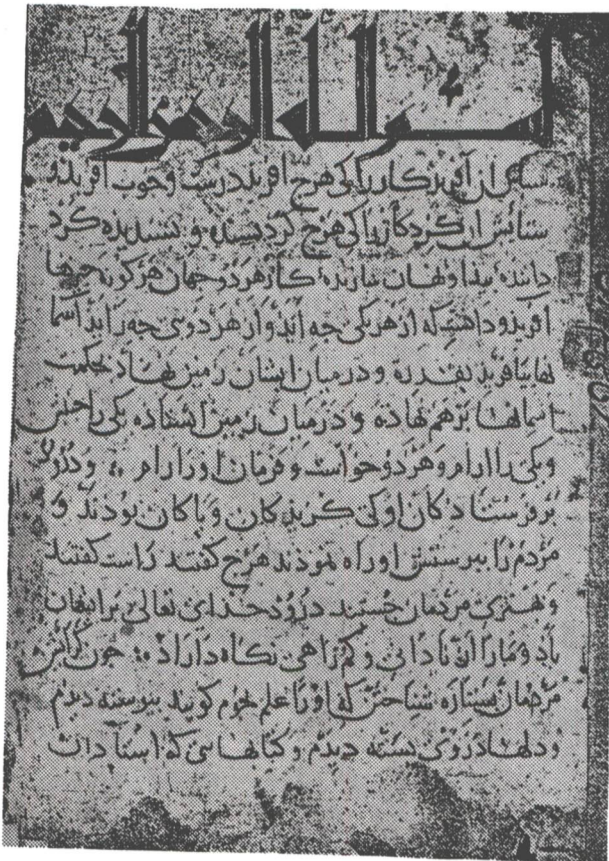 بسم الله الرحمن الرحيم
ستایش آن آفریدکار را کی هرچ آفرید درست و خوب آفرید و
ستایش آن کردکار را کی هرچ کرد بسنده و بسندیده کرد
دانندهٔ بیدا و نهان سازندهٔ کار هر دو جهان هر کونه جیزها
آفرید و دانست که از هر یکی جه آید و از هر دوی جه زاید آسما
نها بیافرید بقدرة و در میان ایشان زمین نهاد حکمت
آسمانها بر هم نهاده و در میان زمین ایستاده یکی را جنبش
و یکی را آرام و هر دو جواست و فرمان او را رام و درود
بر فرستادکان او کی کزیدکان و باکان بودند و
مردم را ببرستش او راه نمودند هرچ کفتند راست کفتند
و هنری مردمان جستند درود خدای تعالی بر ایشان
باد و مارا از نادانی و کم راهی نکاه داراد جون کرایش
مردمان بستاره شناختن که او را علم نجوم کویند بیوسته دیدم
و دلها در وی بسته دیدم و کتابهایی که استادان